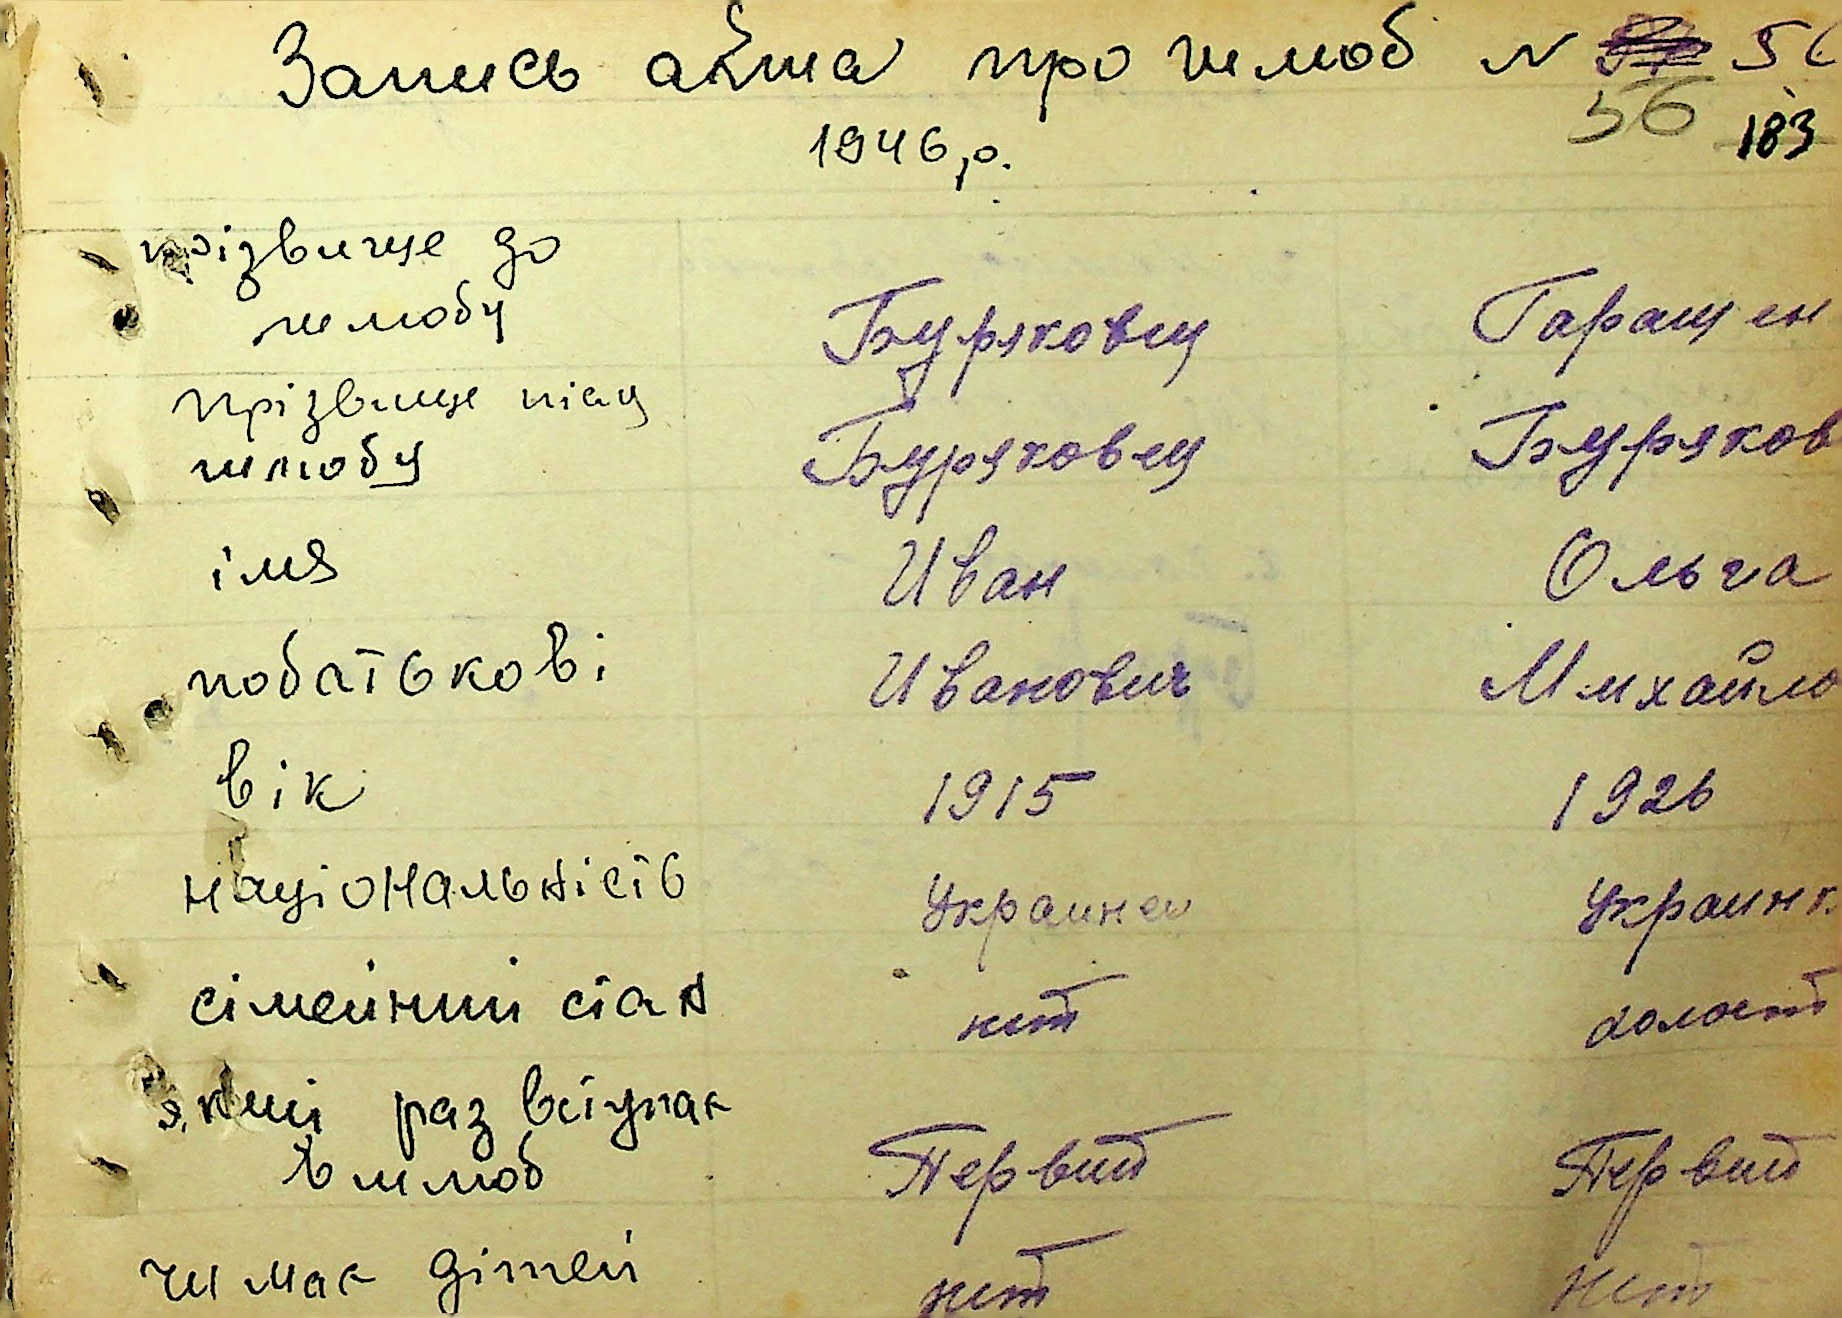 Запись акта про шлюб N 56
56 183
1946 р.
прізвище до
шлюбу Буряковец Гаращен
прізвище після
шлюбу Буряковец Буряков
імя Иван Ольга
побатькові Иванович Михайло
вік 1915 1926
національність Украинец Украинк
сімейний стан нет холост
який раз вступає
в шлюб Первий Первий
чи має дітей нет нет